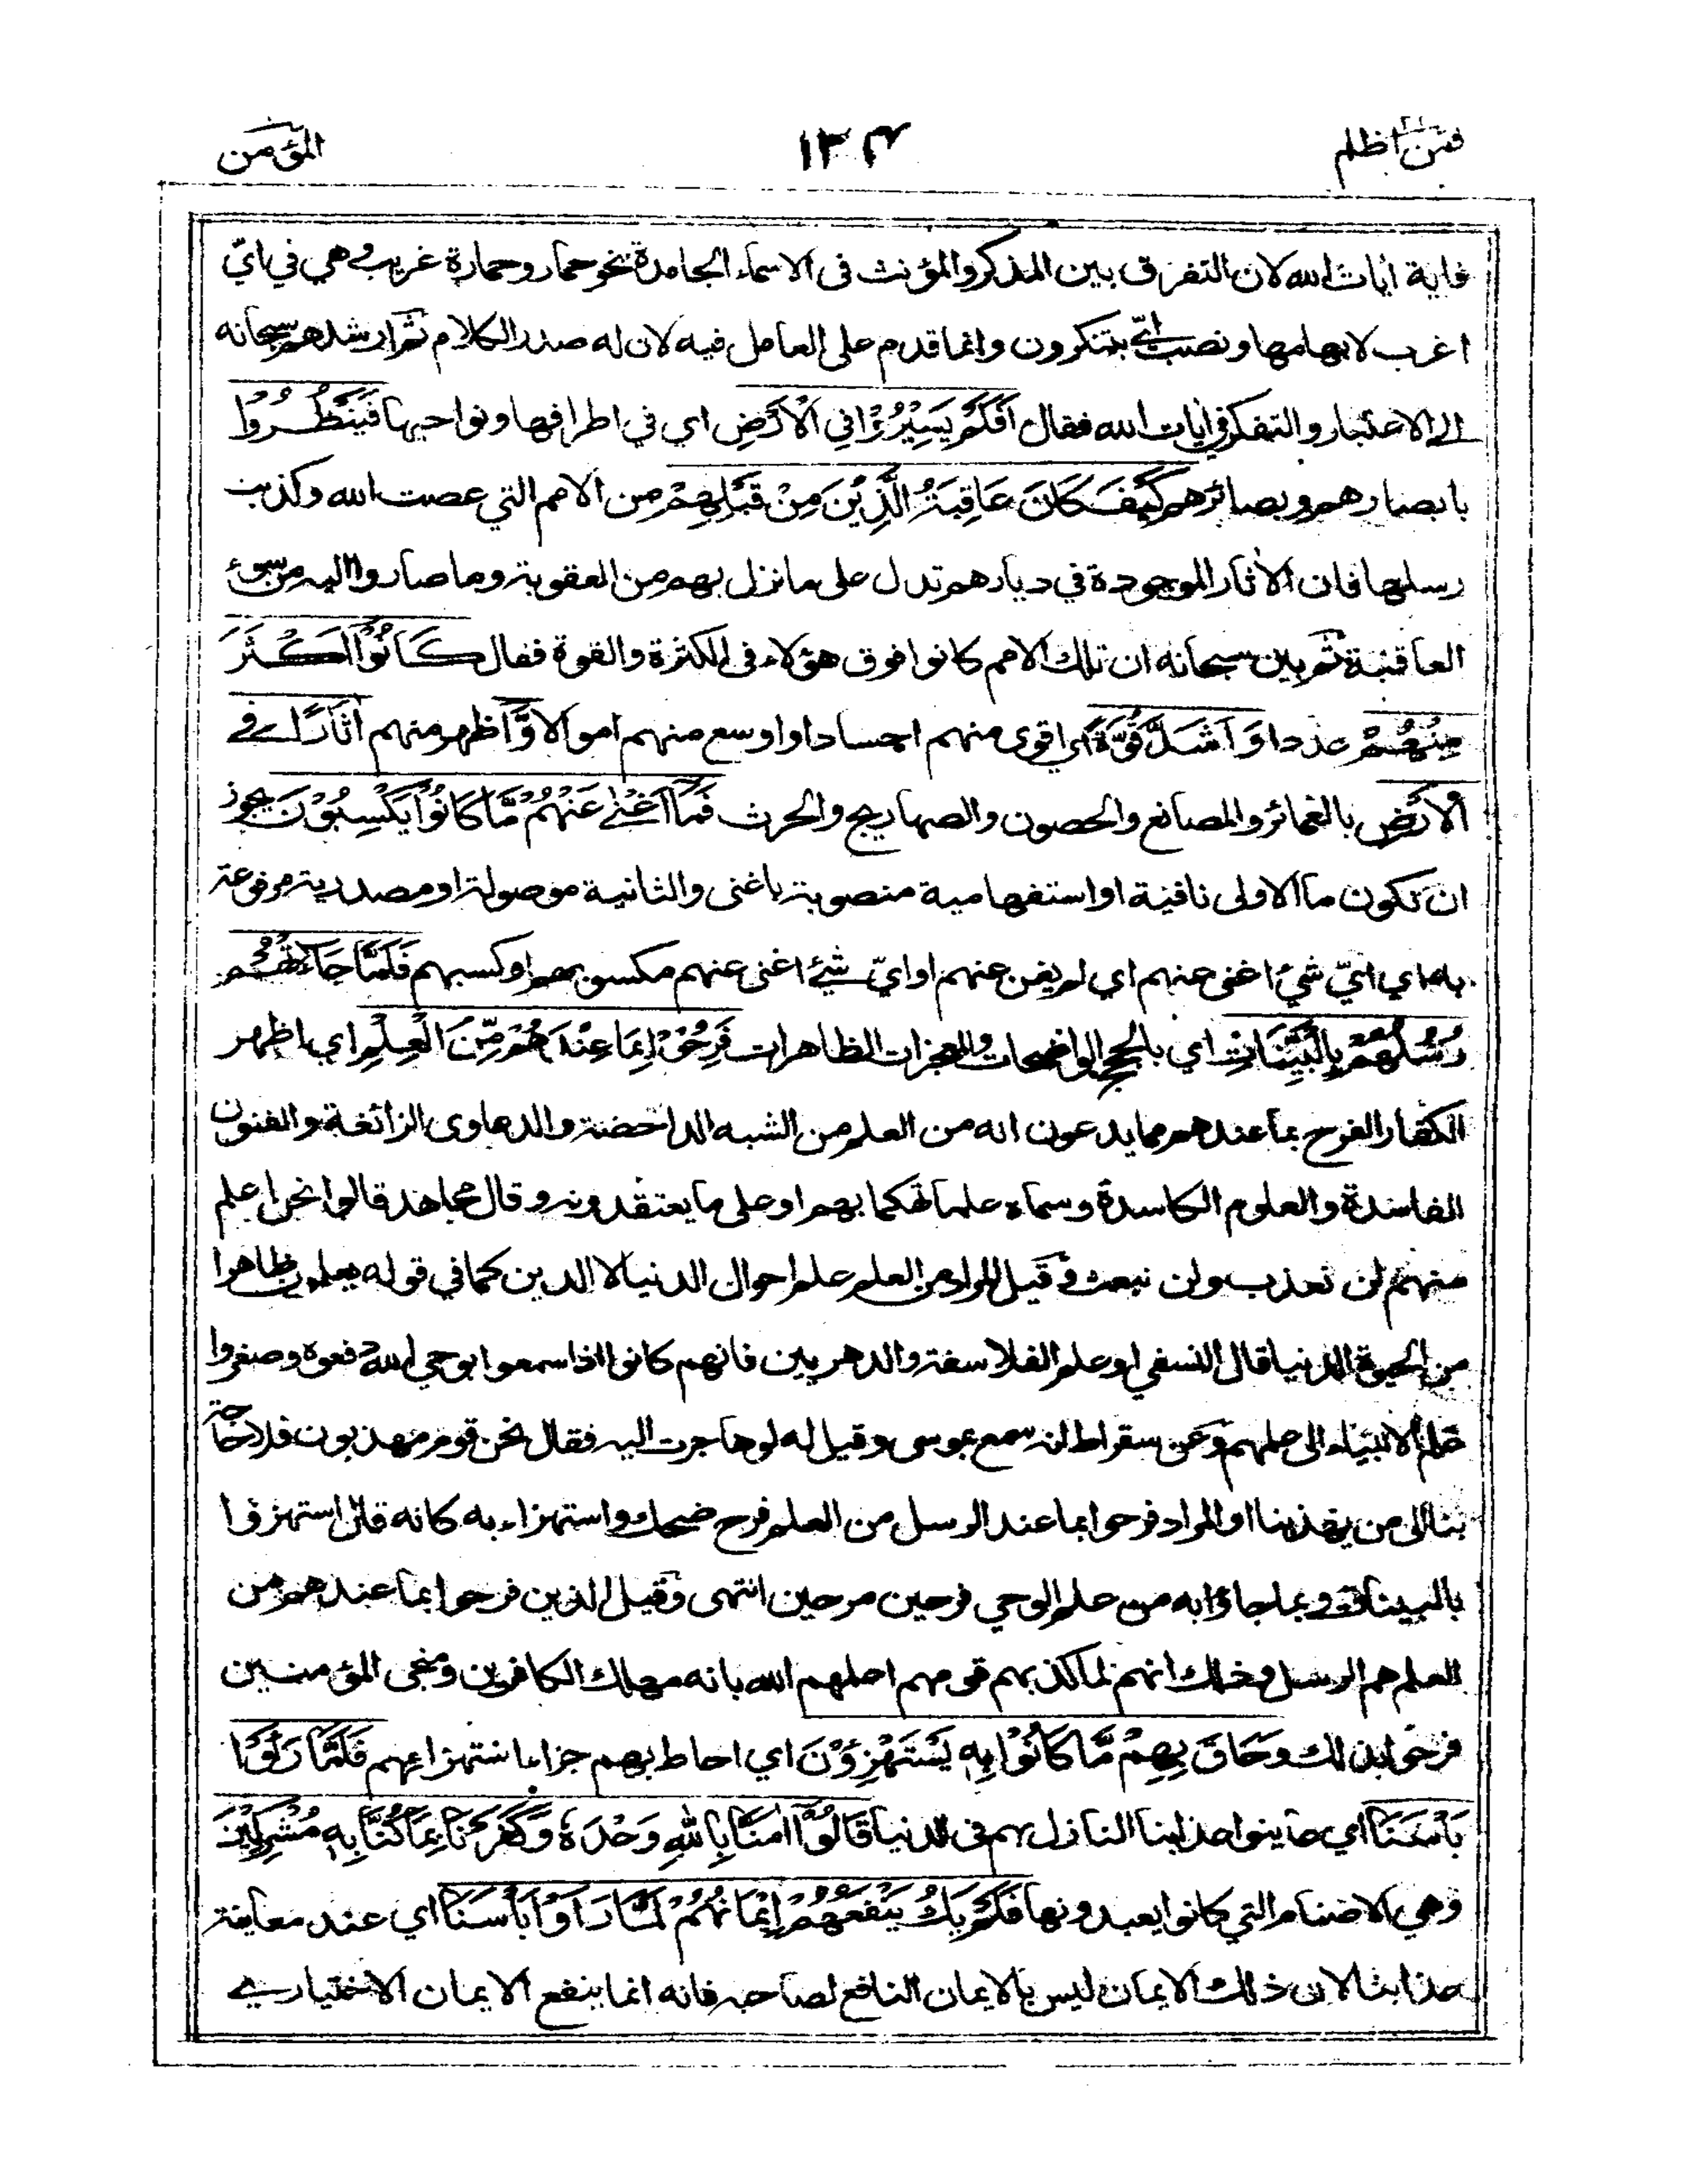 فمن اظلم ١٣٤ المؤمن
فاية ايات الله لان التفرق بين المذكر والمؤنث فى الاسماء الجامدة نحو حمار وحمارة غريب وهي في ايّ
اغرب لابهامها ونصب ايّ بتنكرون وانما قدم على العامل فيه لان له صدر الكلام ثم ارشدهم سبحانه
الى الاعتبار والتفكر في اٰيات الله فقال اَفَلَمْ يَسِيْرُوْا فِي الْاَرْضِ اي في اطرافها ونواحيها فَيَنْظُرُوْا
بابصارهم وبصائرهم كَيْفَ كَانَ عَاقِبَةُ الَّذِيْنَ مِنْ قَبْلِهِمْ من الامم التي عصت الله وكذبت
رسلها فان الاٰثار الموجودة في ديارهم تدل على ما نزل بهم من العقوبة وما صاروا اليه من سوء
العاقبة ثم بين سبحانه ان تلك الامم كانوا فوق هؤلاء فى الكثرة والقوة فقال كَانُوْا اَكْثَرَ
مِنْهُمْ عددا وَ اَشَدَّ قُوَّةً اي اقوى منهم اجسادا واوسع منهم اموالا وَّ اظهر منهم اٰثَارًا فِي
الْاَرْضِ بالعمائر والمصانع والحصون والصهاريج والحرث فَمَا اَغْنٰى عَنْهُمْ مَّا كَانُوْا يَكْسِبُوْنَ يجوز
ان تكون ما الاولى نافية او استفهامية منصوبة باغنى والثانية موصولة او مصدرية مرفوعة
به اي ايّ شيء اغنى عنهم اي لم يغن عنهم او ايّ شيء اغنى عنهم مكسوبهم او كسبهم فَلَمَّا جَاءَتْهُمْ
رُسُلُهُمْ بِالْبَيِّنَاتِ اي بالحجج الواضحات والمعجزات الظاهرات فَرِحُوْا بِمَا عِنْدَهُمْ مِّنَ الْعِلْمِ اي اظهر
الكفار الفرح بما عندهم مما يدعون انه من العلم من الشبه الداحضة والدعاوى الزائغة والفنون
الفاسدة والعلوم الكاسدة وسماه علما تهكما بهم او على ما يعتقدونه وقال مجاهد قالوا نحن اعلم
منهم لن نعذب ولن نبعث وقيل المراد من العلم علم احوال الدنيا لا الدين كما في قوله يعلمون ظاهرا
من الحيوة الدنيا قال النسفي او علم الفلاسفة والدهريين فانهم كانوا اذا سمعوا بوحي الله دفعوه وصغروا
علم الانبياء الى علمهم وعن سقراط انه سمع بموسى وقيل له لو هاجرت اليه فقال نحن قوم مهذبون فلا حاجة
بنا الى من يهذبنا او المراد فرحوا بما عند الرسل من العلم فرح ضحك واستهزاء به كانه قال استهزؤا
بالبينات وبما جاؤا به من علم الوحي فرحين مرحين انتهى وقيل الذين فرحوا بما عندهم من
العلم هم الرسل وذلك انهم لما كذبهم قومهم اعلمهم الله بانه مهلك الكافرين ومنجي المؤمنين
فرحوا بذلك وَحَاقَ بِهِمْ مَّا كَانُوْا بِهٖ يَسْتَهْزِؤُوْنَ اي احاط بهم جزاء استهزاءهم فَلَمَّا رَاَوْا
بَأْسَنَا اي عاينوا عذابنا النازل بهم فى الدنيا قَالُوْا اٰمَنَّا بِاللهِ وَحْدَهٗ وَكَفَرْنَا بِمَا كُنَّا بِهٖ مُشْرِكِيْنَ
وهي الاصنام التي كانوا يعبدونها فَلَمْ يَكُ يَنْفَعُهُمْ اِيْمَانُهُمْ لَمَّا رَاَوْا بَأْسَنَا اي عند معاينة
عذابنا لان ذلك الايمان ليس بالايمان النافع لصاحبه فانه انما ينفع الايمان الاختياري